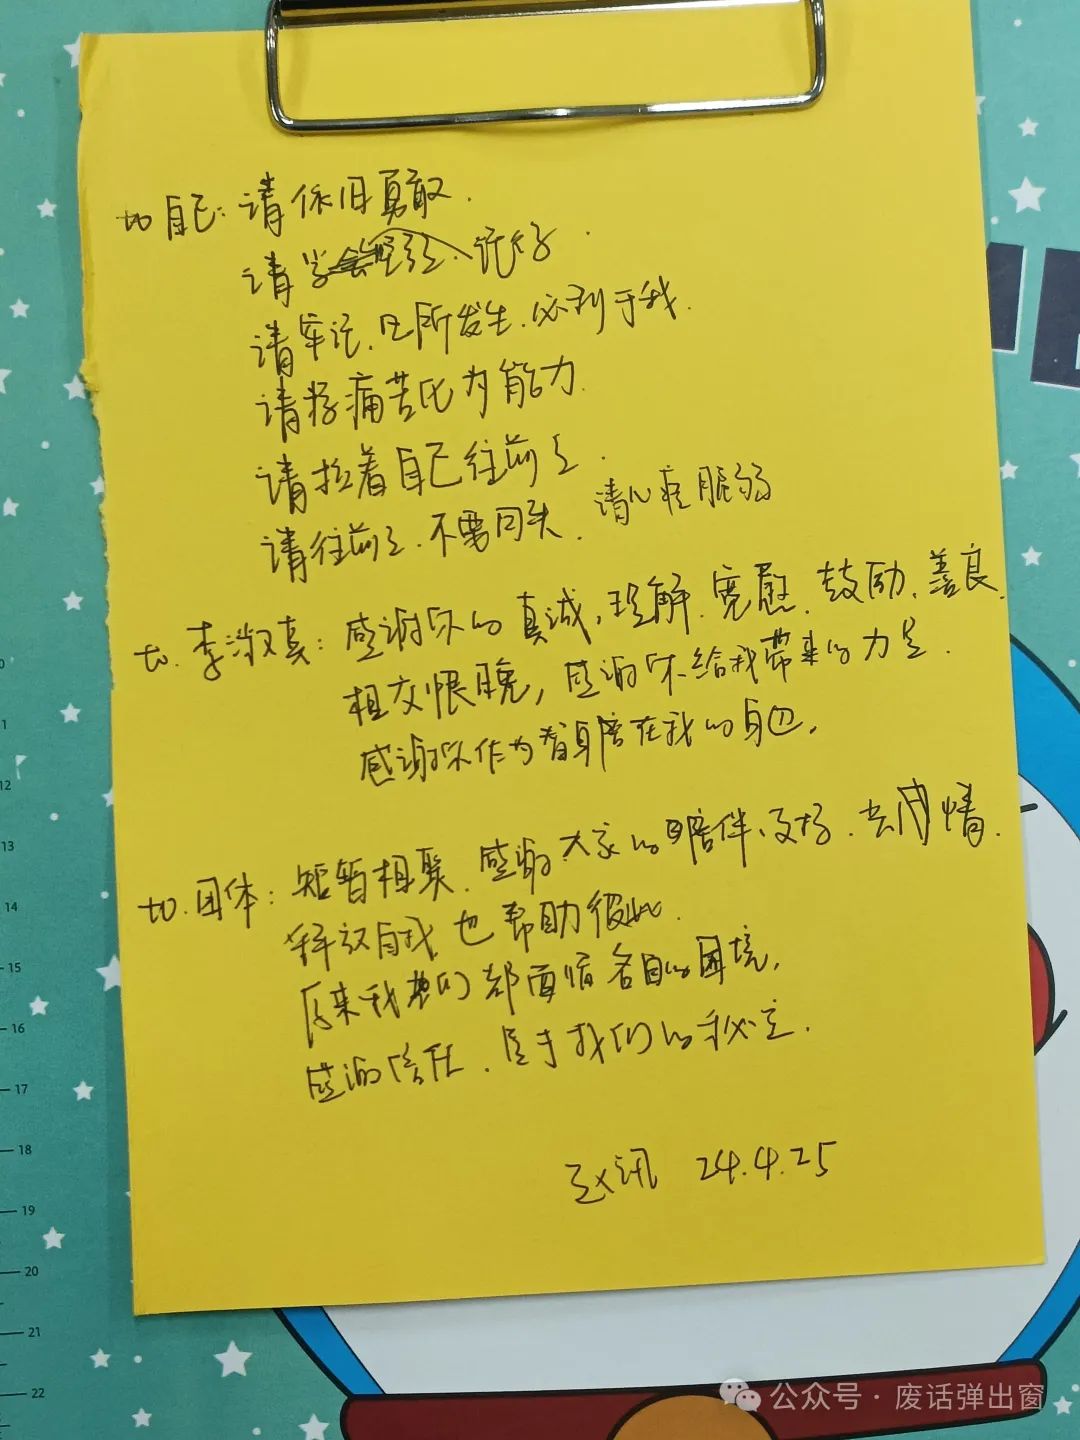 to 自己：请依旧勇敢.
请学会轻轻、说好.
请牢记.凡所发生.必利于我.
请将痛苦化为能力.
请拉着自己往前走.
请往前走.不要回头. 请心疼脆弱
to.李淑真：感谢你的真诚,理解.宽慰.鼓励.善良.
相交恨晚,感谢你给我带来的力量.
感谢你作为替身陪在我的身边.
to.团体：短暂相聚.感谢大家的陪伴、支持.共情.
释放自我也帮助彼此.
原来我们都面临各自的困境,
感谢信任.属于我们的秘密.
赵讯 24.4.25
10
11
12
13
14
15
16
17
18
19
20
21
22
公众号·废话弹出窗